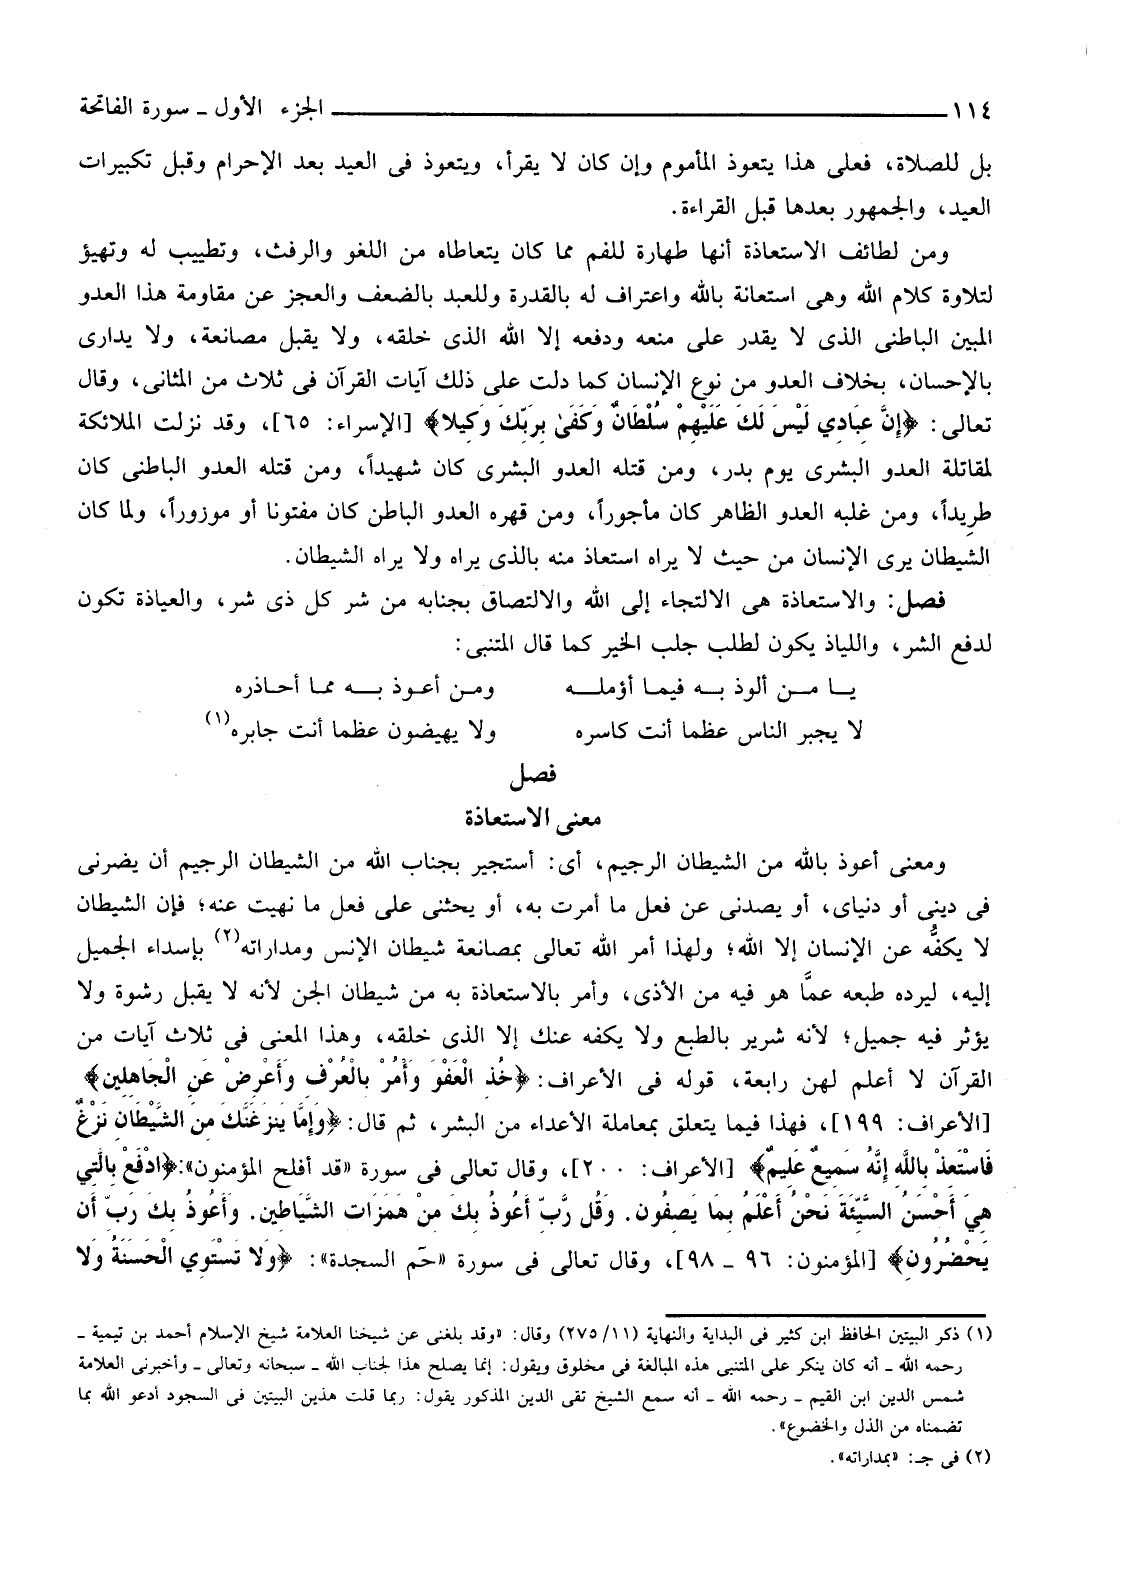 ١١٤ الجزء الأول ـ سورة الفاتحة
بل للصلاة، فعلى هذا يتعوذ المأموم وإن كان لا يقرأ، ويتعوذ فى العيد بعد الإحرام وقبل تكبيرات
العيد، والجمهور بعدها قبل القراءة.
ومن لطائف الاستعاذة أنها طهارة للفم مما كان يتعاطاه من اللغو والرفث، وتطييب له وتهيؤ
لتلاوة كلام الله وهى استعانة بالله واعتراف له بالقدرة وللعبد بالضعف والعجز عن مقاومة هذا العدو
المبين الباطنى الذى لا يقدر على منعه ودفعه إلا الله الذى خلقه، ولا يقبل مصانعة، ولا يدارى
بالإحسان، بخلاف العدو من نوع الإنسان كما دلت على ذلك آيات القرآن فى ثلاث من المثانى، وقال
تعالى: ﴿إِنَّ عِبَادِي لَيْسَ لَكَ عَلَيْهِمْ سُلْطَانٌ وَكَفَىٰ بِرَبِّكَ وَكِيلا﴾ [الإسراء: ٦٥]، وقد نزلت الملائكة
لمقاتلة العدو البشرى يوم بدر، ومن قتله العدو البشرى كان شهيداً، ومن قتله العدو الباطنى كان
طرِيداً، ومن غلبه العدو الظاهر كان مأجوراً، ومن قهره العدو الباطن كان مفتونا أو موزوراً، ولما كان
الشيطان يرى الإنسان من حيث لا يراه استعاذ منه بالذى يراه ولا يراه الشيطان.
فصل: والاستعاذة هى الالتجاء إلى الله والالتصاق بجنابه من شر كل ذى شر، والعياذة تكون
لدفع الشر، واللياذ يكون لطلب جلب الخير كما قال المتنبى:
يـا مـن ألوذ بـه فيمـا أؤملـه ومـن أعـوذ بـه مما أحـاذره
لا يجبر الناس عظما أنت كاسره ولا يهيضون عظما أنت جابره(١)
فصل
معنى الاستعاذة
ومعنى أعوذ بالله من الشيطان الرجيم، أى: أستجير بجناب الله من الشيطان الرجيم أن يضرنى
فى دينى أو دنياى، أو يصدنى عن فعل ما أمرت به، أو يحثنى على فعل ما نهيت عنه؛ فإن الشيطان
لا يكفُّه عن الإنسان إلا الله؛ ولهذا أمر الله تعالى بمصانعة شيطان الإنس ومداراته(٢) بإسداء الجميل
إليه، ليرده طبعه عمَّا هو فيه من الأذى، وأمر بالاستعاذة به من شيطان الجن لأنه لا يقبل رشوة ولا
يؤثر فيه جميل؛ لأنه شرير بالطبع ولا يكفه عنك إلا الذى خلقه، وهذا المعنى فى ثلاث آيات من
القرآن لا أعلم لهن رابعة، قوله فى الأعراف: ﴿خُذِ الْعَفْوَ وَأْمُرْ بِالْعُرْفِ وَأَعْرِضْ عَنِ الْجَاهِلِينَ﴾
[الأعراف: ١٩٩]، فهذا فيما يتعلق بمعاملة الأعداء من البشر، ثم قال: ﴿وَإِمَّا يَنزَغَنَّكَ مِنَ الشَّيْطَانِ نَزْغٌ
فَاسْتَعِذْ بِاللَّهِ إِنَّهُ سَمِيعٌ عَلِيمٌ﴾ [الأعراف: ٢٠٠]، وقال تعالى فى سورة «قد أفلح المؤمنون»: ﴿ادْفَعْ بِالَّتِي
هِيَ أَحْسَنُ السَّيِّئَةَ نَحْنُ أَعْلَمُ بِمَا يَصِفُونَ. وَقُل رَّبِّ أَعُوذُ بِكَ مِنْ هَمَزَاتِ الشَّيَاطِينِ. وَأَعُوذُ بِكَ رَبِّ أَن
يَحْضُرُونِ﴾ [المؤمنون: ٩٦ ـ ٩٨]، وقال تعالى فى سورة «حم السجدة»: ﴿وَلا تَسْتَوِي الْحَسَنَةُ وَلا
(١) ذكر البيتين الحافظ ابن كثير فى البداية والنهاية (١١/ ٢٧٥) وقال: «وقد بلغنى عن شيخنا العلامة شيخ الإسلام أحمد بن تيمية ـ
رحمه الله ـ أنه كان ينكر على المتنبى هذه المبالغة فى مخلوق ويقول: إنما يصلح هذا لجناب الله ـ سبحانه وتعالى ـ وأخبرنى العلامة
شمس الدين ابن القيم ـ رحمه الله ـ أنه سمع الشيخ تقى الدين المذكور يقول: ربما قلت هذين البيتين فى السجود أدعو الله بما
تضمناه من الذل والخضوع».
(٢) فى جـ: «بمداراته».